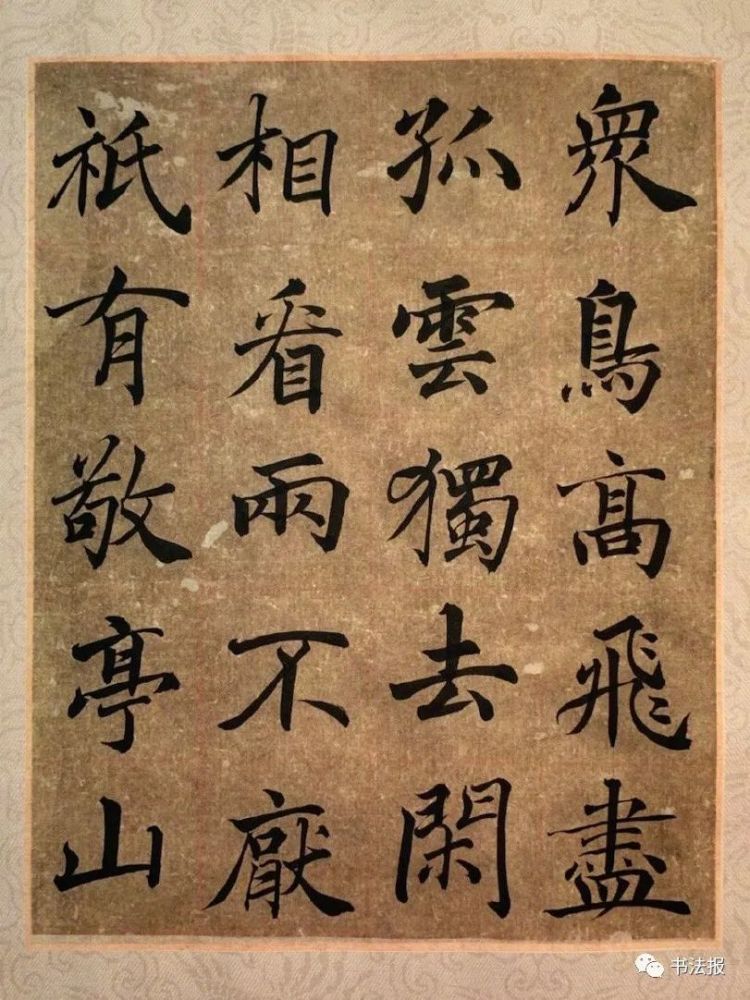 衆鳥高飛盡
孤雲獨去閑
相看兩不厭
祇有敬亭山
书法报